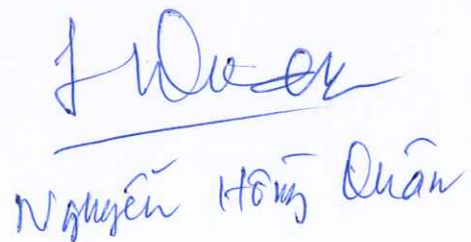 Nguyễn Hồng Quân